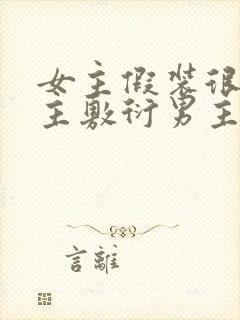 女主假装很
主敷衍男主
言離